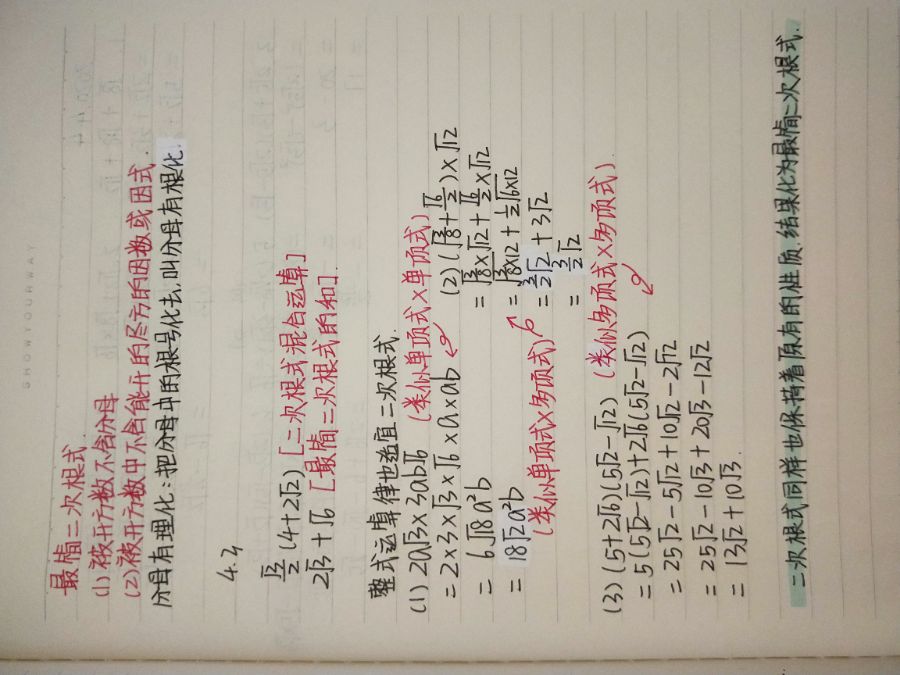 SHOWYOURWAY
最简二次根式.
(1) 被开方数不含分母
(2) 被开方数中不含能开的尽方的因数或因式.
分母有理化:把分母中的根号化去,叫分母有根化!
4.3
√3/2 (4+2√2) [二次根式混合运算]
2√3+√6 [最简二次根式的和].
整式运算律也适宜二次根式.
(1) 2a√3×3ab√6 (类似单项式×单项式)
=2×3×√3×√6×a×ab
= 6√18a²b
= 18√2a²b
(2) (√(3/8)+√6/2)×√12
=√(3/8)×√12+√6/2×√12
=√(3/8×12)+1/2√(6×12)
=3/2√2+3√2
=
3/2√2
(类似单项式×多项式)
(3) (5+2√6)(5√2-√12) (类似多项式×多项式)
=5(5√2-√12)+2√6(5√2-√12)
=25√2-5√12+10√12-2√72
=25√2-10√3+20√3-12√2
=13√2+10√3.
二次根式同样也保持着原有的性质.结果化为最简二次根式.